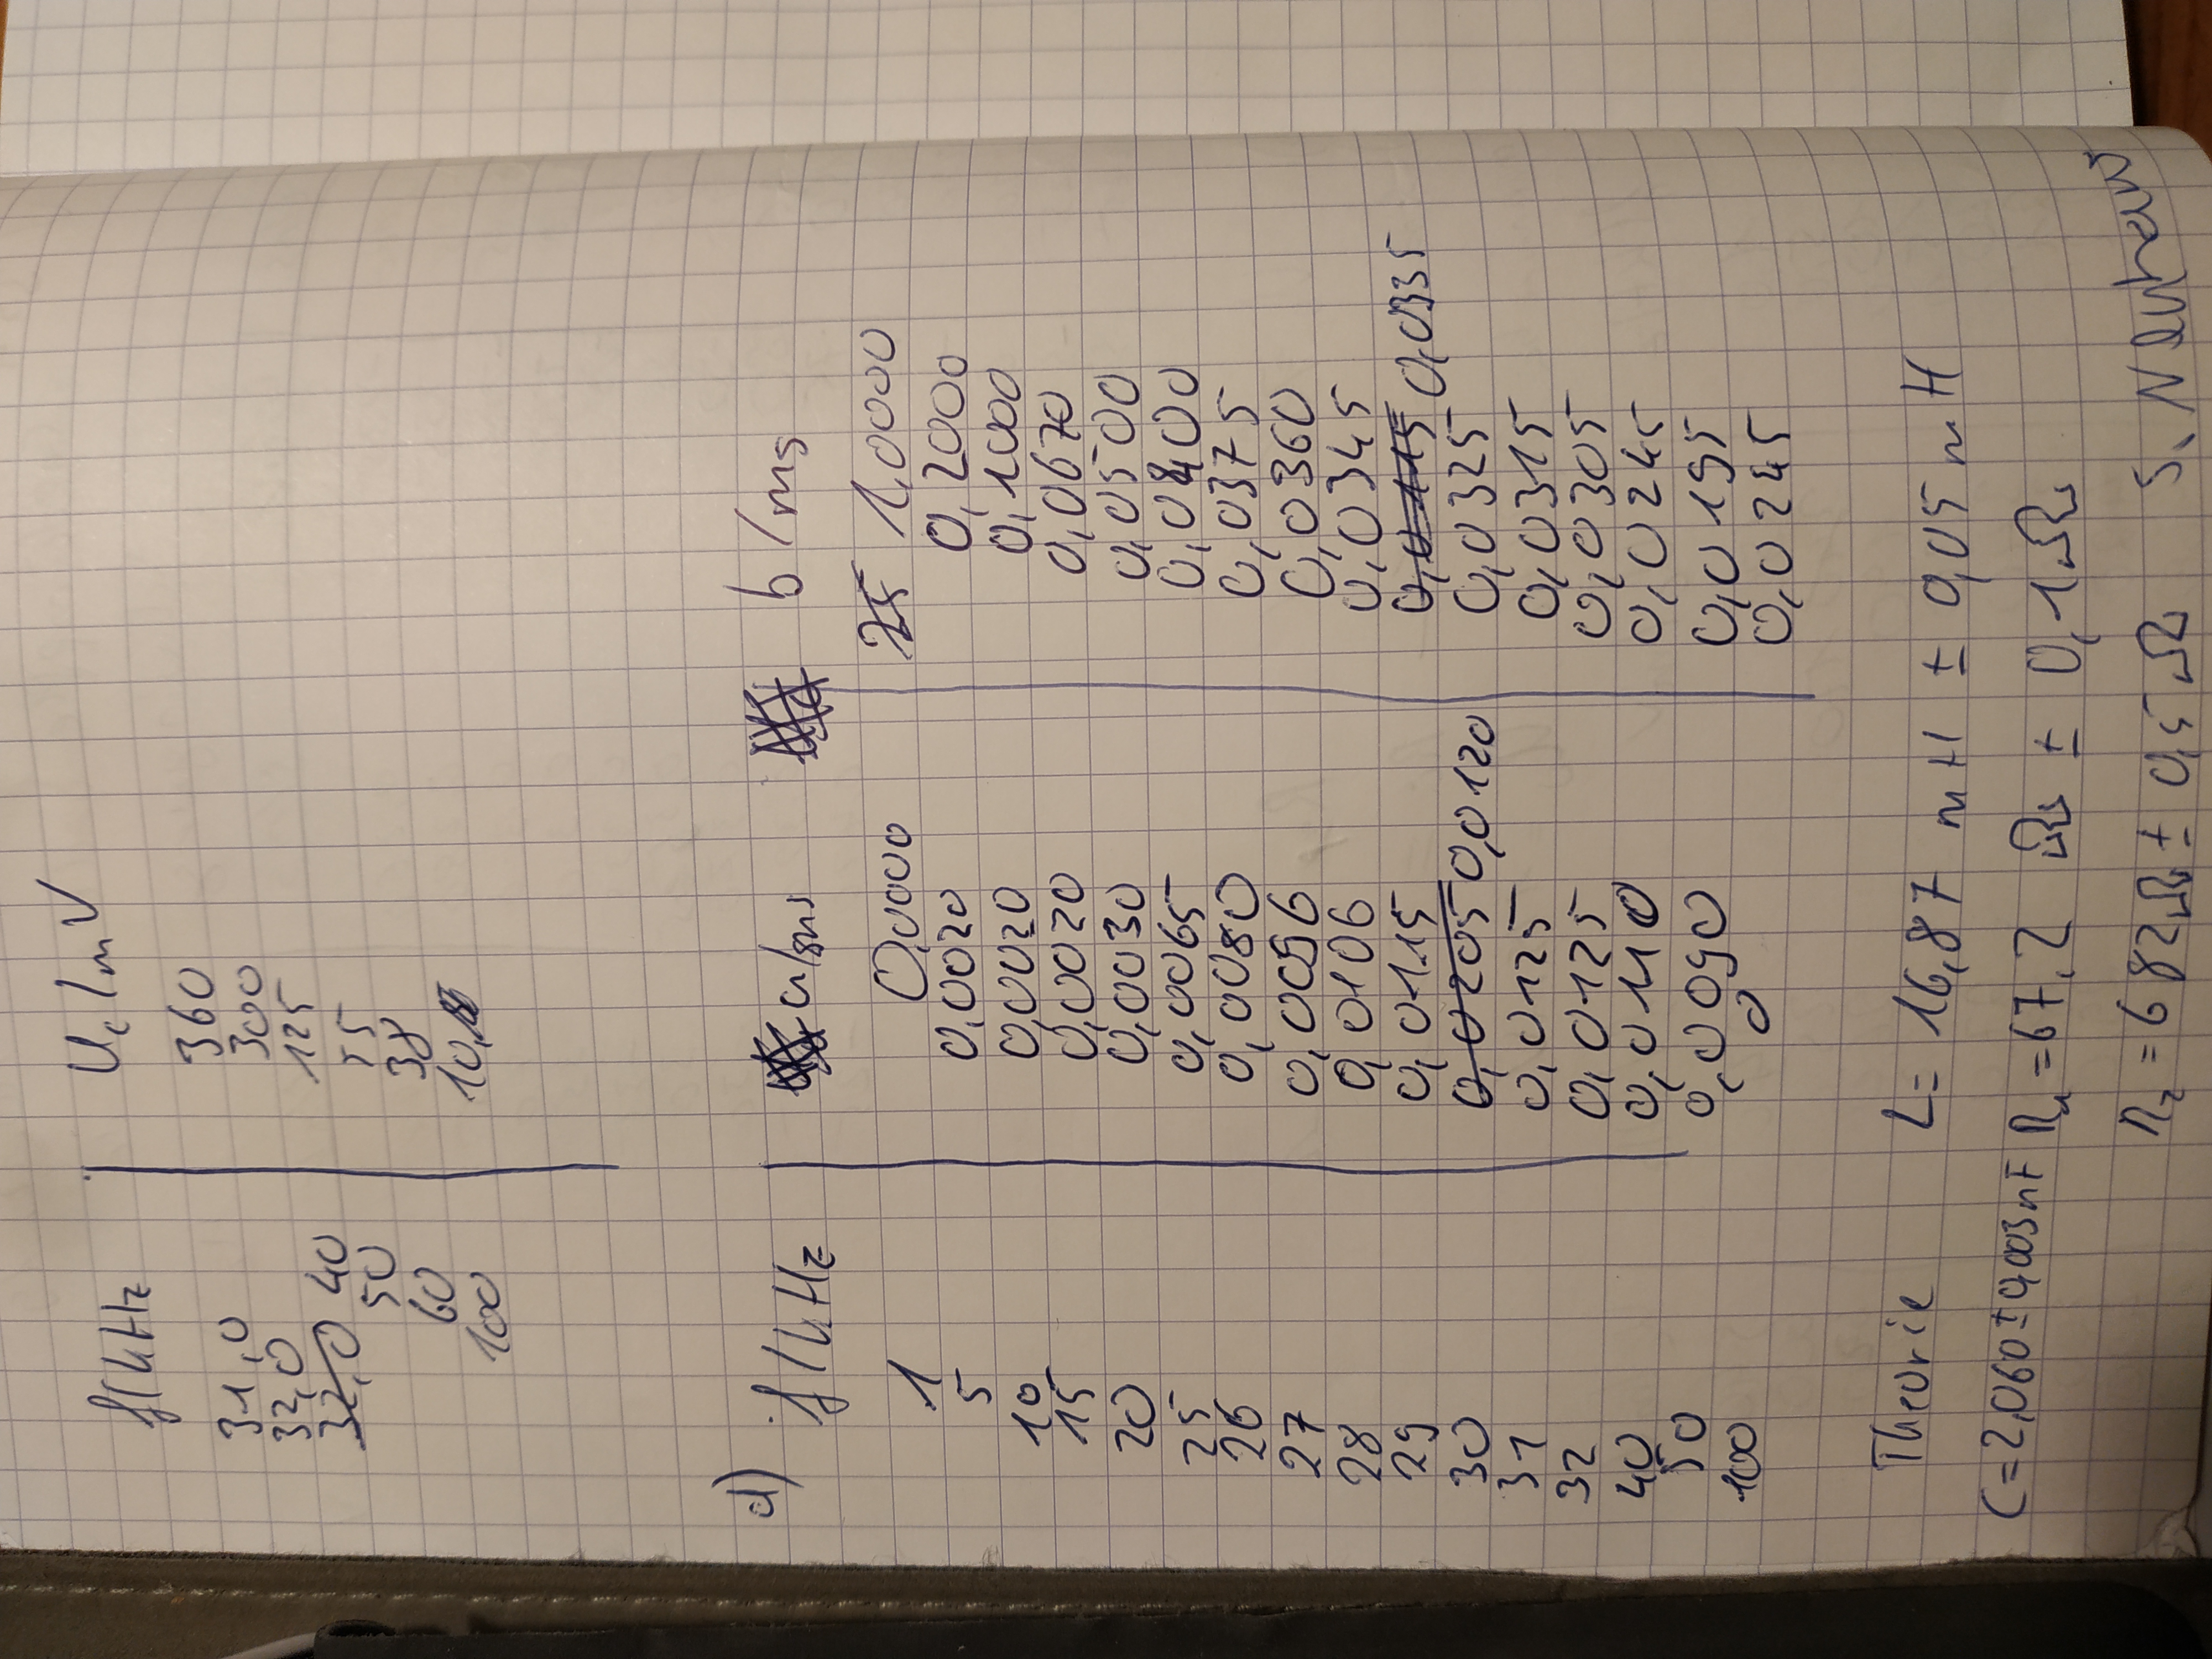 f/kHz U_c/mV
31,0 360
32,0 300
40 125
50 55
60 38
100 10,
d)
f/kHz a/ms b/ms
1 0,0000 1,0000
5 0,0020 0,2000
10 0,0020 0,1000
15 0,0020 0,0670
20 0,0030 0,0500
25 0,0065 0,0400
26 0,0080 0,0375
27 0,0096 0,0360
28 0,0106 0,0345
29 0,0115 0,0335
30 0,0120 0,0325
31 0,0125 0,0315
32 0,0125 0,0305
40 0,0110 0,0245
50 0,0090 0,0195
100 0 0,0245
Theorie L = 16,87 mH ± 0,05 mH
C = 2,060 ± 0,003 nF R₁ = 67,2 Ω ± 0,1 Ω
R₂ = 682 Ω ± 0,5 Ω S.